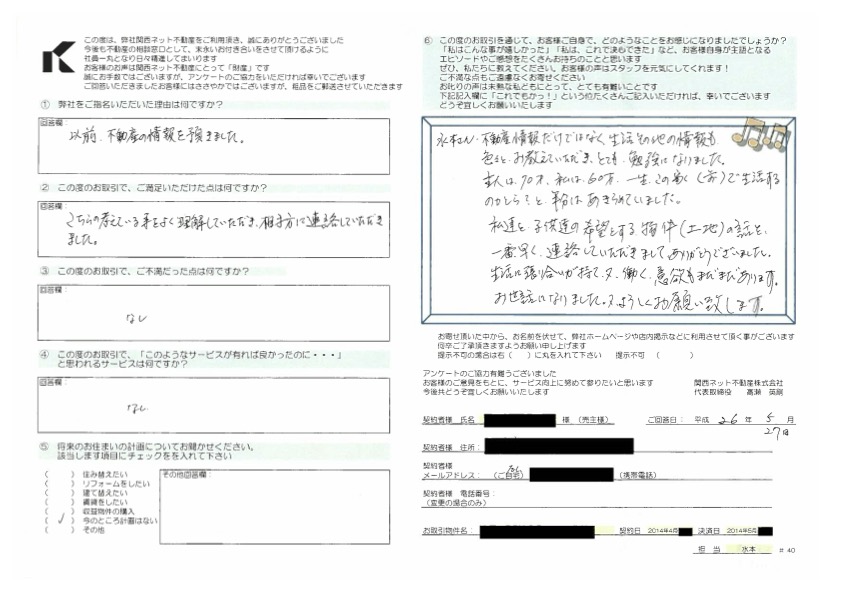 この度は、弊社関西ネット不動産をご利用頂き、誠にありがとうございました
今後も不動産の相談窓口として、末永いお付き合いをさせて頂けるように
社員一丸となり日々精進してまいります
お客様のお声は関西ネット不動産にとって「財産」です
誠にお手数ではございますが、アンケートのご協力をいただければ幸いでございます
ご回答いただきましたお客様にはささやかではございますが、粗品をご郵送させていただきます
① 弊社をご指名いただいた理由は何ですか?
回答欄:
以前、不動産の情報を頂きました。
② この度のお取引で、ご満足いただけた点は何ですか?
回答欄:
こちらの考えている事をよく理解していただき、相手方に連絡していただき
ました。
③ この度のお取引で、ご不満だった点は何ですか?
回答欄:
なし
④ この度のお取引で、「このようなサービスが有れば良かったのに・・・」
と思われるサービスは何ですか?
回答欄:
なし
⑤ 将来のお住まいの計画についてお聞かせください。
該当します項目にチェックをを入れて下さい
( ) 住み替えたい
( ) リフォームをしたい
( ) 建て替えたい
( ) 賃貸をしたい
( ) 収益物件の購入
( ✓ ) 今のところ計画はない
( ) その他
その他回答欄:
⑥ この度のお取引を通じて、お客様ご自身で、どのようなことをお感じになりましたでしょうか?
「私はこんな事が嬉しかった」「私は、これで決もできた」など、お客様自身が主語となる
エピソードやご感想をたくさんお持ちのことと思います
ぜひ、私たちに教えてください。お客様の声はスタッフを元気にしてくれます!
ご不満な点もご遠慮なくお寄せください
お叱りの声は未熟な私どもにとって、とても有難いことです
下記記入欄に「これでもかっ!」という位たくさんご記入いただければ、幸いでございます
どうぞ宜しくお願いいたします
水本さん、不動産情報だけではなく生活その他の情報も
色々とお教えていただき、とても勉強になりました。
主人は70才、私は60才、一生この家(京)で生活する
のかしら?と半分はあきらめていました。
私達と子供達の希望とする物件(土地)の話を、
一番早く、連絡していただきましてありがとうございました。
生活に張り合いが持て、又、働く、意欲もまだまだあります。
お世話になりました。又、よろしくお願い致します。
お寄せ頂いた中から、お名前を伏せて、弊社ホームページや店内掲示などに利用させて頂く事がございます
何卒ご了承頂きますようお願い申し上げます
提示不可の場合は右( )に丸を入れて下さい 提示不可 ( )
アンケートのご協力有難うございました
お客様のご意見をもとに、サービス向上に努めて参りたいと思います 関西ネット不動産株式会社
今後共どうぞ宜しくお願いいたします 代表取締役 高瀬 英嗣
契約者様 氏名 様 (売主様) ご回答日: 平成 26 年 5 月
27日
契約者様 住所:
契約者様
メールアドレス: (ご自宅) (携帯電話)
契約者様 電話番号:
(変更の場合のみ)
お取引物件名: 契約日 2014年4月 決済日 2014年5月
担 当 水本 # 40